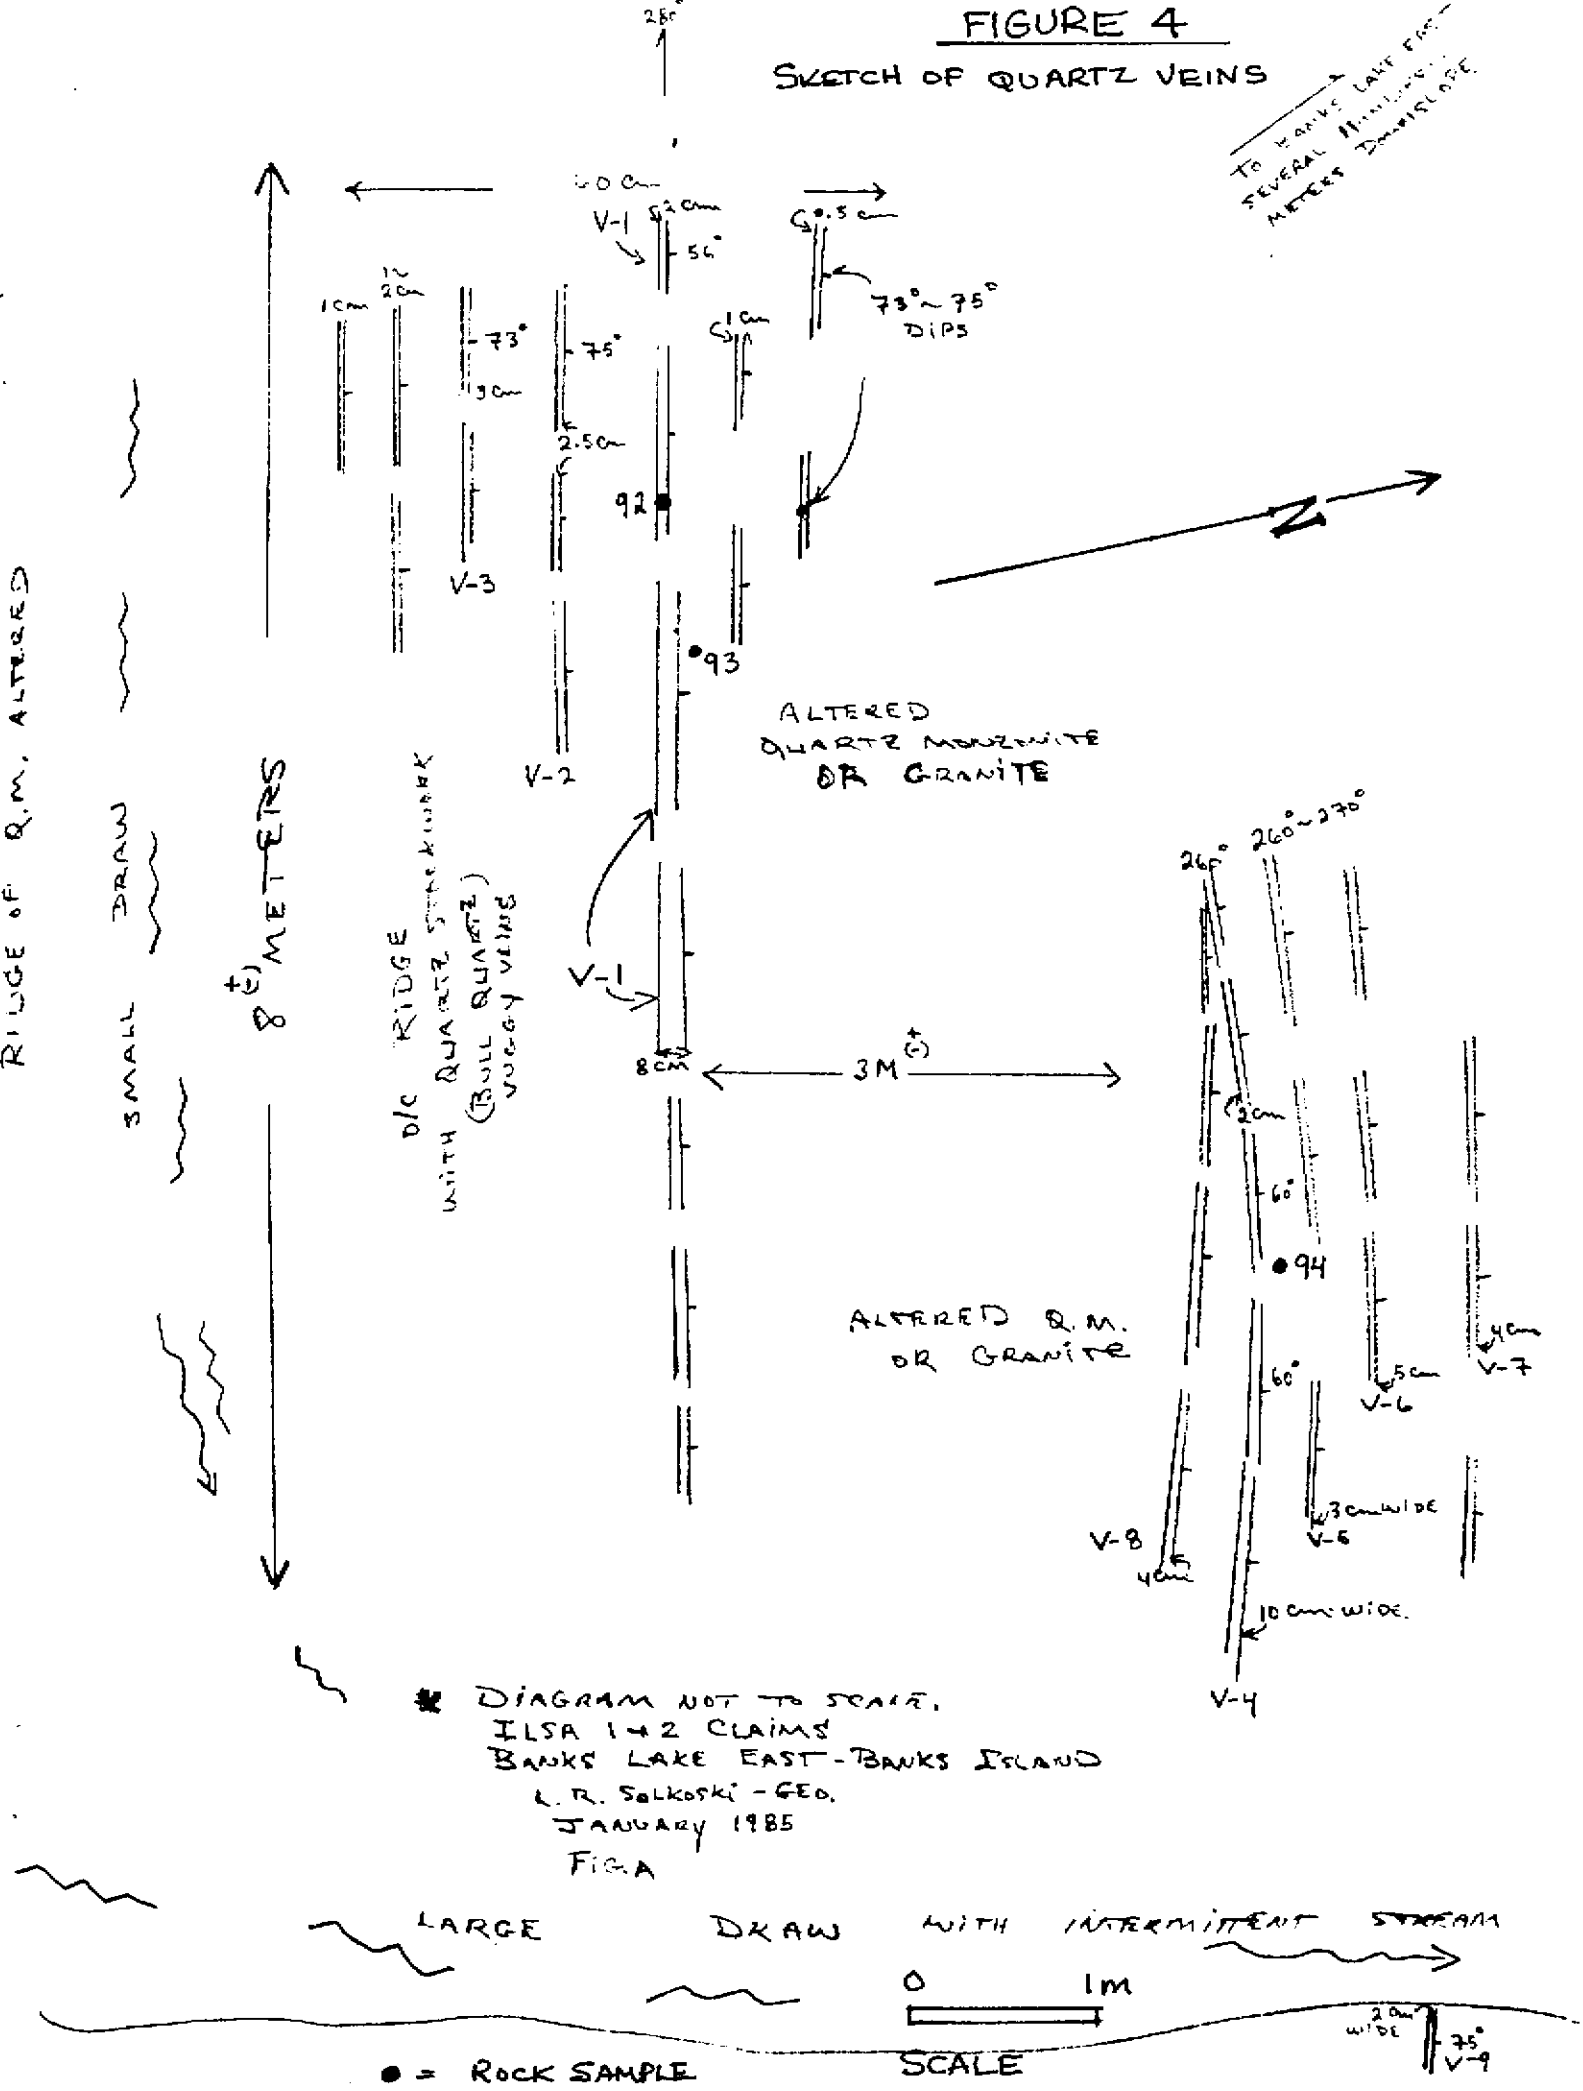 FIGURE 4
SKETCH OF QUARTZ VEINS
TO BANKS LAKE EAST
SEVERAL
METERS DOWNSLOPE
60 cm
V-1
2 cm
56°
0.5 cm
73°~75°
DIPS
1 cm
1~
2cm
73°
3 cm
75°
2.5 cm
1 cm
92
V-3
93
V-2
N
ALTERED
QUARTZ MONZONITE
OR GRANITE
RIDGE OF Q.M. ALTERED
SMALL DRAW
8 (±) METERS
O/C RIDGE
WITH QUARTZ STOCKWORK
(BULL QUARTZ)
VUGGY VEINS
V-1
8 CM
3M (±)
260°~270°
2cm
60°
94
60°
ALTERED Q.M.
OR GRANITE
4 cm
V-7
5 cm
V-6
3 cm WIDE
V-5
V-8
4cm
10 cm WIDE.
V-4
* DIAGRAM NOT TO SCALE.
ILSA 1+2 CLAIMS
BANKS LAKE EAST - BANKS ISLAND
L. R. SOLKOSKI - GEO.
JANUARY 1985
FIG. A
LARGE DRAW WITH INTERMITTENT STREAM
0 1m
SCALE
2 cm
WIDE
75°
V-9
● = ROCK SAMPLE